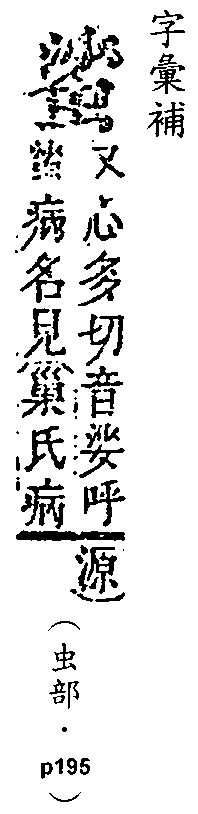 字彙補
又心多切音娑呼
病名見巢氏病
源
（虫部・p195）